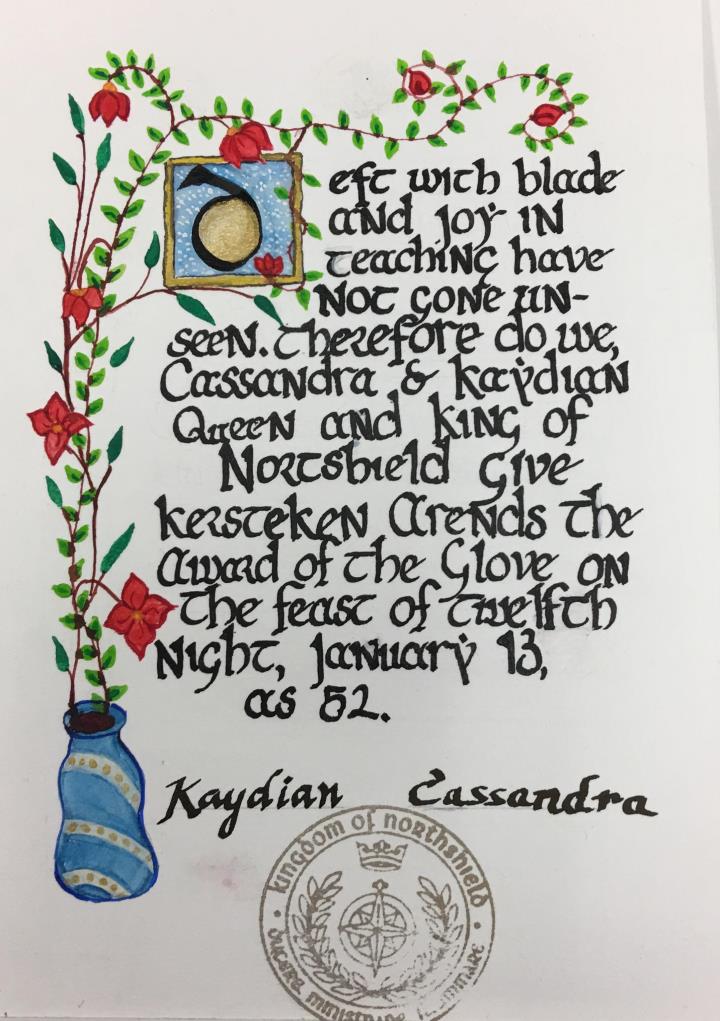 Deft with blade
and joy in
teaching have
not gone un-
seen. Therefore do we,
Cassandra & Kaydian
Queen and King of
Nortshield give
Kersteken Arends the
award of the Glove on
the feast of Twelfth
Night, January 13,
as 52.
Kaydian Cassandra
kingdom of northshield
ducere ministrare